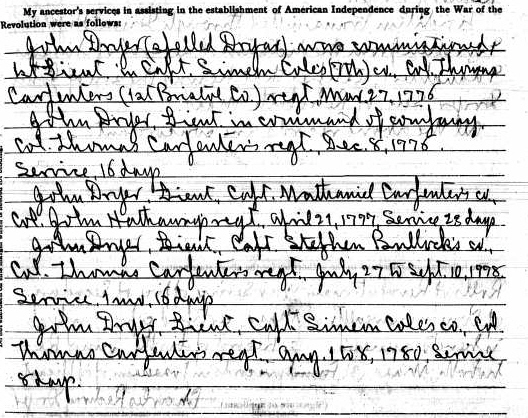 My ancestor's services in assisting in the establishment of American Independence during the War of the
Revolution were as follows:
John Dryer (spelled Dryar) was commissioned
1st Lieut. in Capt. Simeon Cole's (7th) co., Col. Thomas
Carpenter's (1st Bristol Co.) regt., Mar. 27, 1776
John Dryer, Lieut in command of company,
Col. Thomas Carpenter's regt., Dec. 8, 1776.
Service, 16 days
John Dryer, Lieut., Capt. Nathaniel Carpenter's co.,
Col. John Hathaway's regt., April 21, 1777, Service 28 days
John Dryer, Lieut., Capt. Stephen Bullock's co.,
Col. Thomas Carpenter's regt., July 27 to Sept. 10, 1778,
Service, 1 mo., 16 days
John Dryer, Lieut., Capt. Simeon Cole's co., Col.
Thomas Carpenter's regt., Aug. 1 to 8, 1780, Service
8 days.